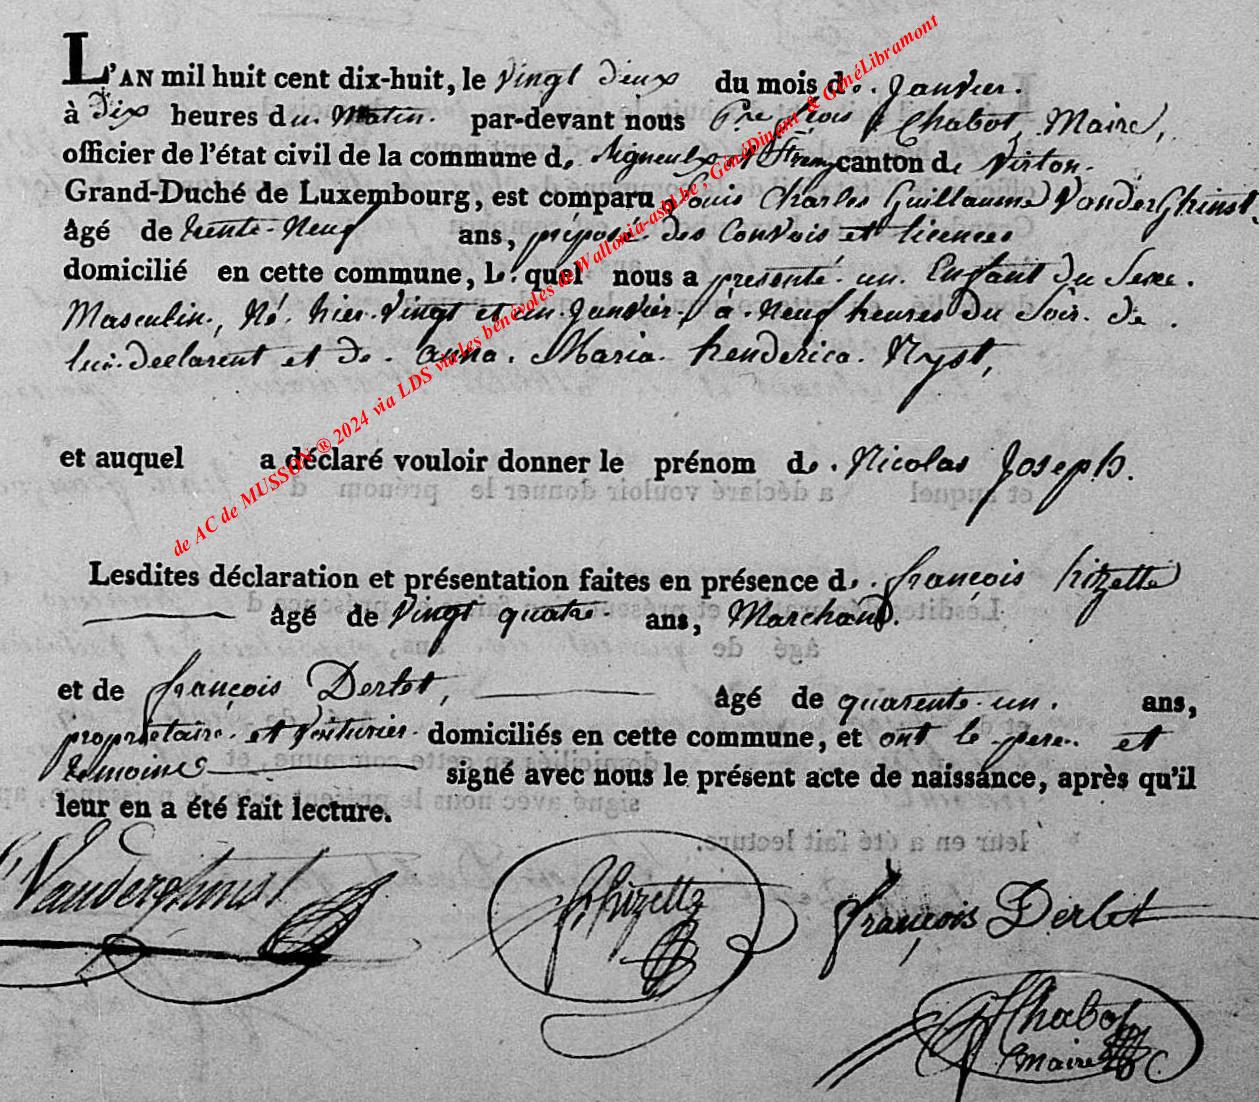 L'AN mil huit cent dix-huit, le vingt deux du mois de Janvier.
à Dix heures du Matin. par-devant nous Chabot, Maire,
officier de l'état civil de la commune de Signeulx canton de Virton.
Grand-Duché de Luxembourg, est comparu Louis Charles Guillaume VanderGhinst,
âgé de trente-Neuf ans, préposé des Convois et licences
domicilié en cette commune, lequel nous a presenté un Enfant du Sexe.
Masculin, Né hier vingt et un Janvier, à Neuf heures Du Soir. de
lui declarent et de anna. Maria. henderica. Nyst,
et auquel a déclaré vouloir donner le prénom de Nicolas Joseph.
Lesdites déclaration et présentation faites en présence de françois hizette
âgé de vingt quatre ans, Marchand.
et de françois Derlet, âgé de quarente-un. ans,
proprietaire et Voiturier domiciliés en cette commune, et ont le pere et
temoins signé avec nous le présent acte de naissance, après qu'il
leur en a été fait lecture.
Vanderghinst
f. hizette
françois Derlet
Chabot
maire
de AC de MUSSON ® 2024 via LDS via les bénévoles de Wallonia-asbl.be ; GénéDinant & GénéLibramont